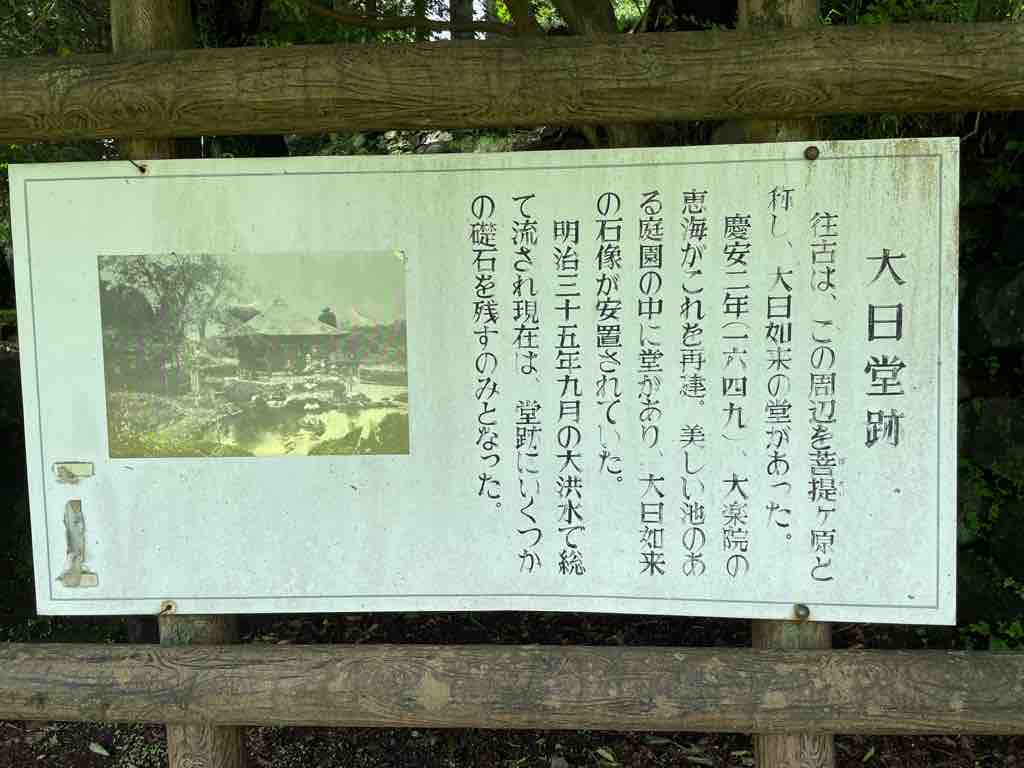 大日堂跡
往古は、この周辺を菩提ヶ原と
称し、大日如来の堂があった。
慶安二年(一六四九)、大楽院の
恵海がこれを再建。美しい池のあ
る庭園の中に堂があり、大日如来
の石像が安置されていた。
明治三十五年九月の大洪水で総
て流され現在は、堂跡にいくつか
の礎石を残すのみとなった。